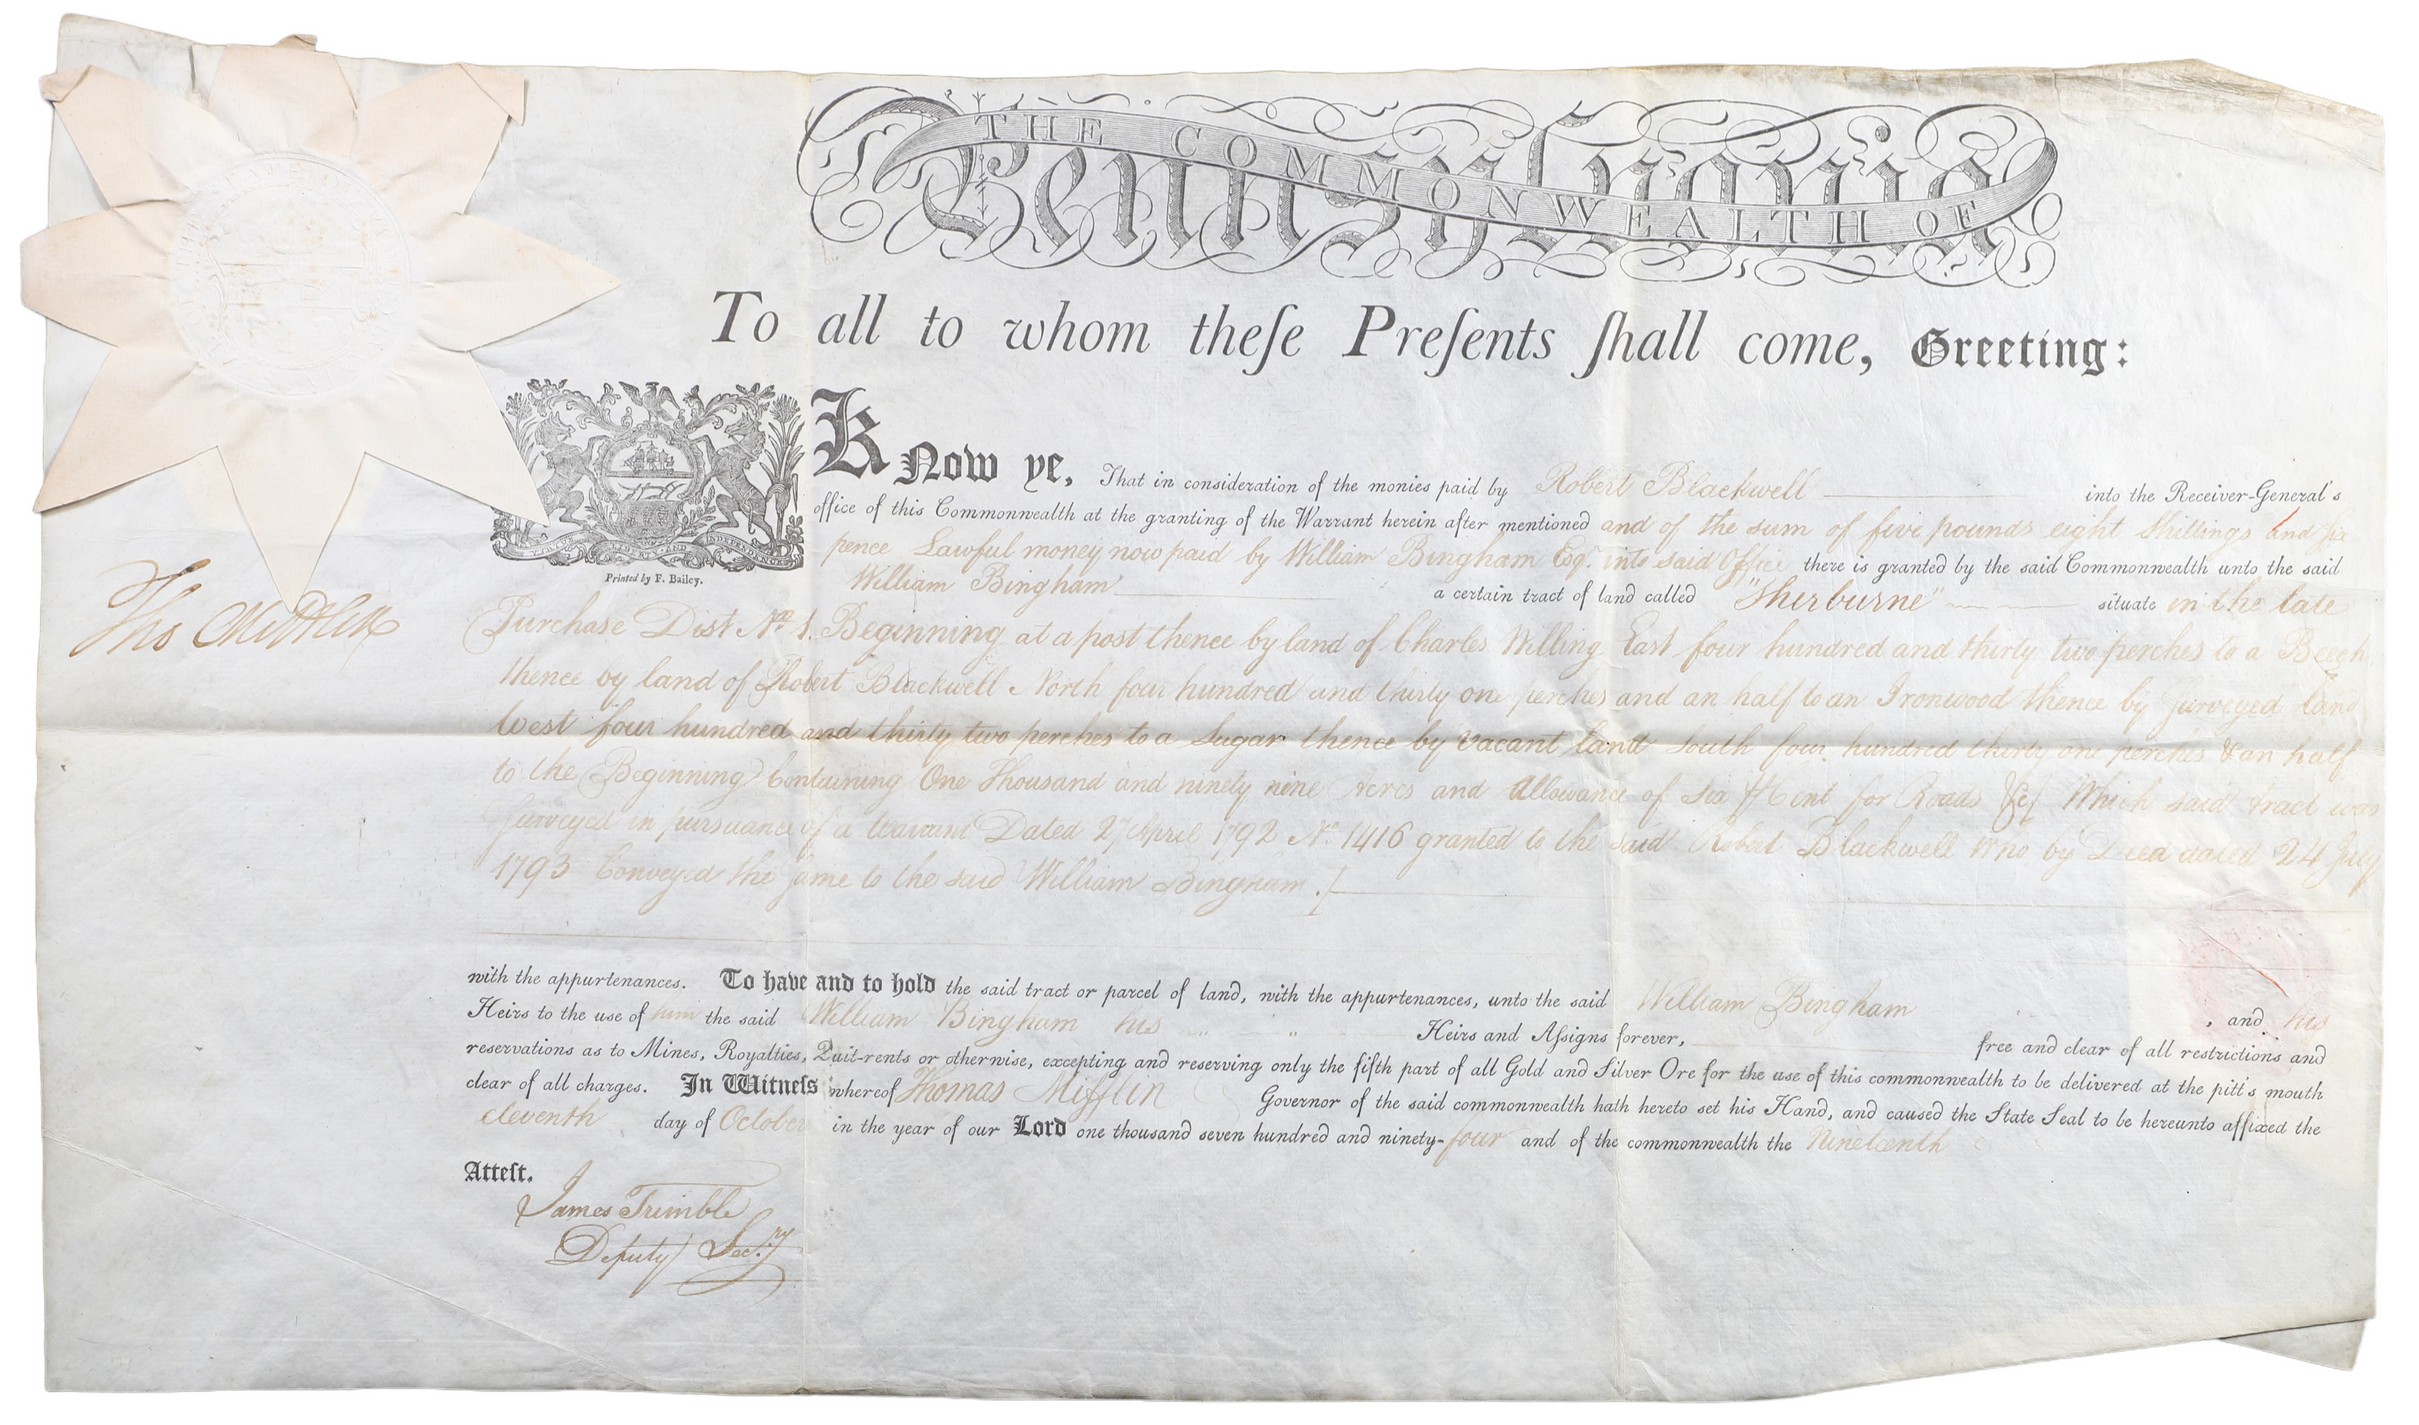 THE COMMONWEALTH OF
Pennsylvania
To all to whom theſe Preſents ſhall come, Greeting:
KNow ye, That in consideration of the monies paid by Robert Blackwell into the Receiver-General's
office of this Commonwealth at the granting of the Warrant herein after mentioned and of the sum of five pounds eight Shillings and six
pence Lawful money now paid by William Bingham Esqr. into said Office there is granted by the said Commonwealth unto the said
William Bingham a certain tract of land called "Sherburne" situate in the late
Purchase Dist No. 1. Beginning at a post thence by land of Charles Willing East four hundred and thirty two perches to a Beech
thence by land of Robert Blackwell North four hundred and thirty one perches and an half to an Ironwood thence by surveyed land
West four hundred and thirty two perches to a Sugar thence by vacant land South four hundred thirty one perches & an half
to the Beginning Containing One Thousand and ninety nine Acres and Allowance of Six ⅌ Cent for Roads &c Which said tract was
surveyed in pursuance of a Warrant Dated 2 April 1792 No. 1416 granted to the said Robert Blackwell who by Deed dated 24 July
1793 Conveyed the same to the said William Bingham.
VIRTUE LIBERTY AND INDEPENDENCE
Printed by F. Bailey.
Tho Mifflin
with the appurtenances. To have and to hold the said tract or parcel of land, with the appurtenances, unto the said William Bingham, and his
Heirs to the use of him the said William Bingham his Heirs and Aſsigns forever, free and clear of all restrictions and
reservations as to Mines, Royalties, Quit-rents or otherwise, excepting and reserving only the fifth part of all Gold and Silver Ore for the use of this commonwealth to be delivered at the pitt's mouth
clear of all charges. In Witneſs whereof Thomas Mifflin Governor of the said commonwealth hath hereto set his Hand, and caused the State Seal to be hereunto affixed the
eleventh day of October in the year of our Lord one thousand seven hundred and ninety-four and of the commonwealth the Nineteenth
Atteſt.
James Trimble
Deputy Secry.